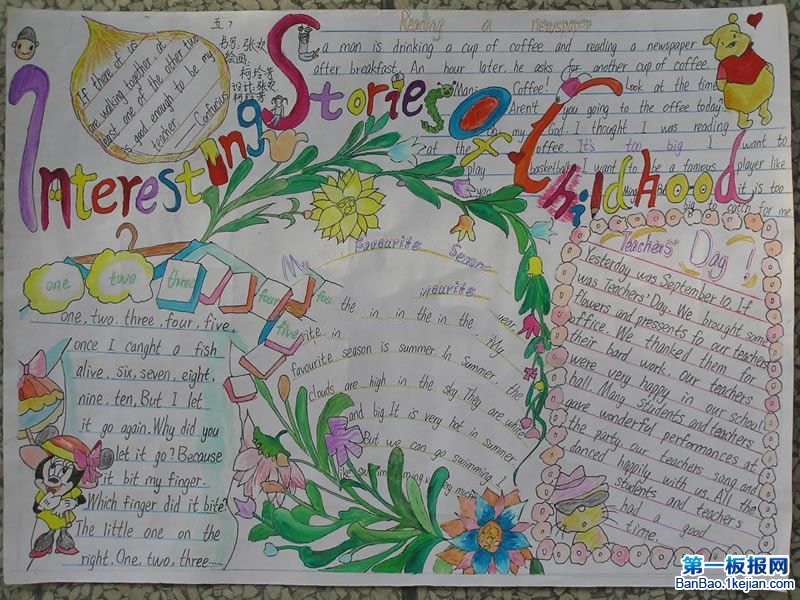 五7
书写:张
绘画:
柯玲芳
设计:张
柯玲芳
If there of us
are walking together at
least one of the other two
is good enough to be my
teacher. —Confucius
Interesting Stories Of Childhood
Reading a newspaper
a man is drinking a cup of coffee and reading a newspaper
after breakfast. An hour later, he asks for another cup of coffee.
Coffee! Look at the time
Aren't you going to the offee today?
my God. I thought I was reading
at the offee. It's too big I want to
play basketball. I want to be a famous player like
Ming. But it is too
big to catch for me
one two three four five
one, two, three, four, five,
once I canght a fish
alive, six, seven, eight,
nine, ten, But I let
it go again. Why did you
let it go? Because
it bit my finger.
Which finger did it bite?
The little one on the
right. One, two, three......
My Favourite Season
the in in the in the. My
favourite season is summer. In Summer, the
clouds are high in the sky. They are white
and big. It is very hot in summer.
But we can go swimming. I
like swimming very much
Teachers' Day!
Yesterday was September 10. If
was Teachers' Day. We brought some
flowers and pressents to our teachers
office. We thanked them for
their bard work. our teachers
were very happy in our school
hall. Many students and teachers
gave wonderful performances at
the party. Our teachers sang and
danced happily with us. All the
students and teachers
had a good
time.
第一板报网
BanBao.1kejian.com